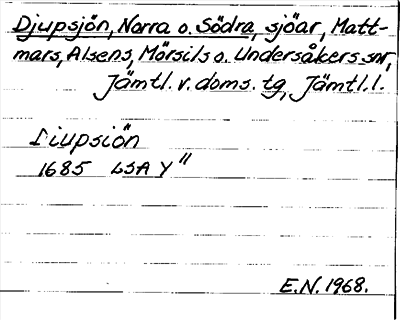 Djupsjön, Norra o. Södra, sjöar, Matt-
mars, Alsens, Mörsils o. Undersåkers snr,
Jämtl. v. doms. tg, Jämtl. l.
Diupsiön
1685 LSA Y"
E.N. 1968.